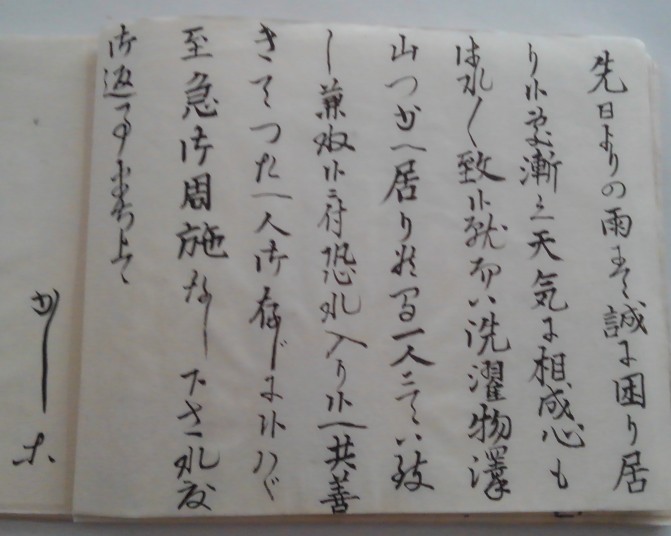 先日よりの雨にて誠に困り居
り候処漸く天気に相成心も
はれ〳〵致候就而ハ洗濯物澤
山つかへ居り候間一人にてハ致
し兼ね候ニ付恐れ入り候へ共善
きてつた一人御存じに候ハゞ
至急御周施なし下され度
御返事まち上候
かしこ